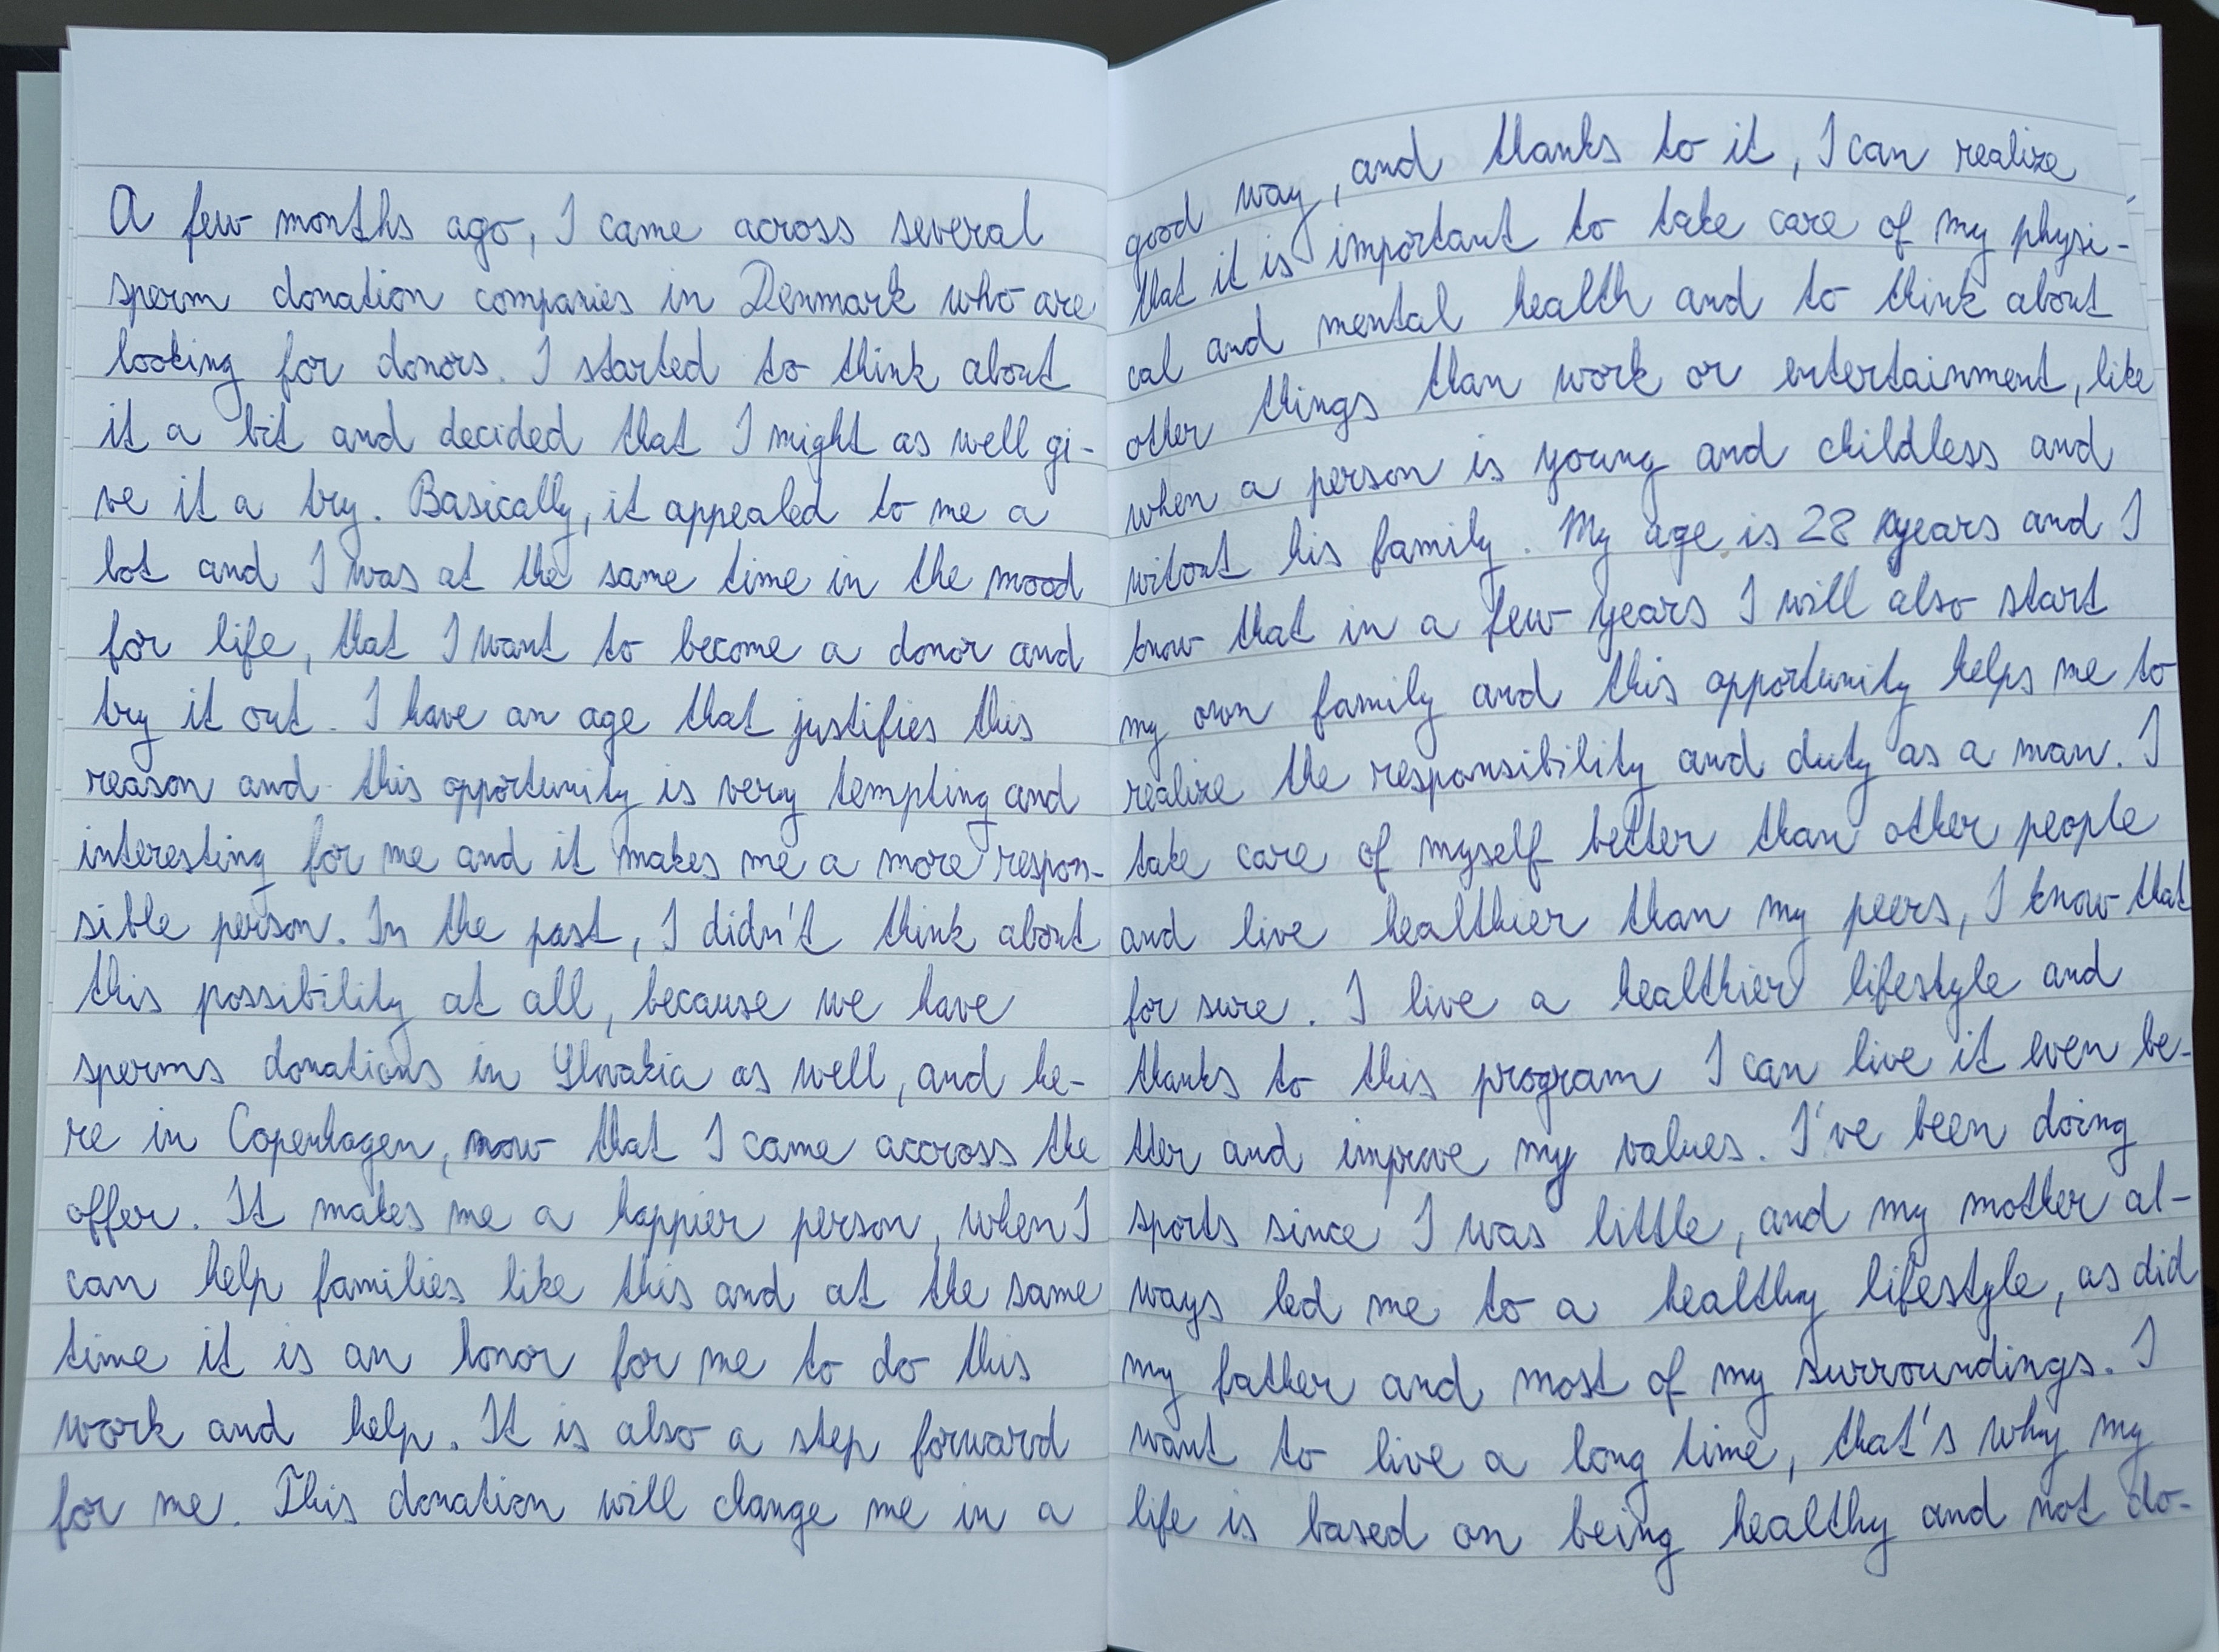 A few months ago, I came across several
sperm donation companies in Denmark who are
looking for donors. I started to think about
it a bit and decided that I might as well gi-
ve it a try. Basically, it appealed to me a
lot and I was at the same time in the mood
for life, that I want to become a donor and
try it out. I have an age that justifies this
reason and this opportunity is very tempting and
interesting for me and it makes me a more respon-
sible person. In the past, I didn't think about
this possibility at all, because we have
sperms donations in Slovakia as well, and he-
re in Copenhagen, now that I came accross the
offer. It makes me a happier person, when I
can help families like this and at the same
time it is an honor for me to do this
work and help. It is also a step forward
for me. This donation will change me in a
good way, and thanks to it, I can realize
that it is important to take care of my physi-
cal and mental health and to think about
other things than work or entertainment, like
when a person is young and childless and
witout his family. My age is 28 years and I
know that in a few years I will also start
my own family and this opportunity helps me to
realize the responsibility and duty as a man. I
take care of myself better than other people
and live healthier than my peers, I know that
for sure. I live a healthier lifestyle and
thanks to this program I can live it even be-
tter and improve my values. I've been doing
sports since I was little, and my mother al-
ways led me to a healthy lifestyle, as did
my father and most of my surroundings. I
want to live a long time, that's why my
life is based on being healthy and not do-